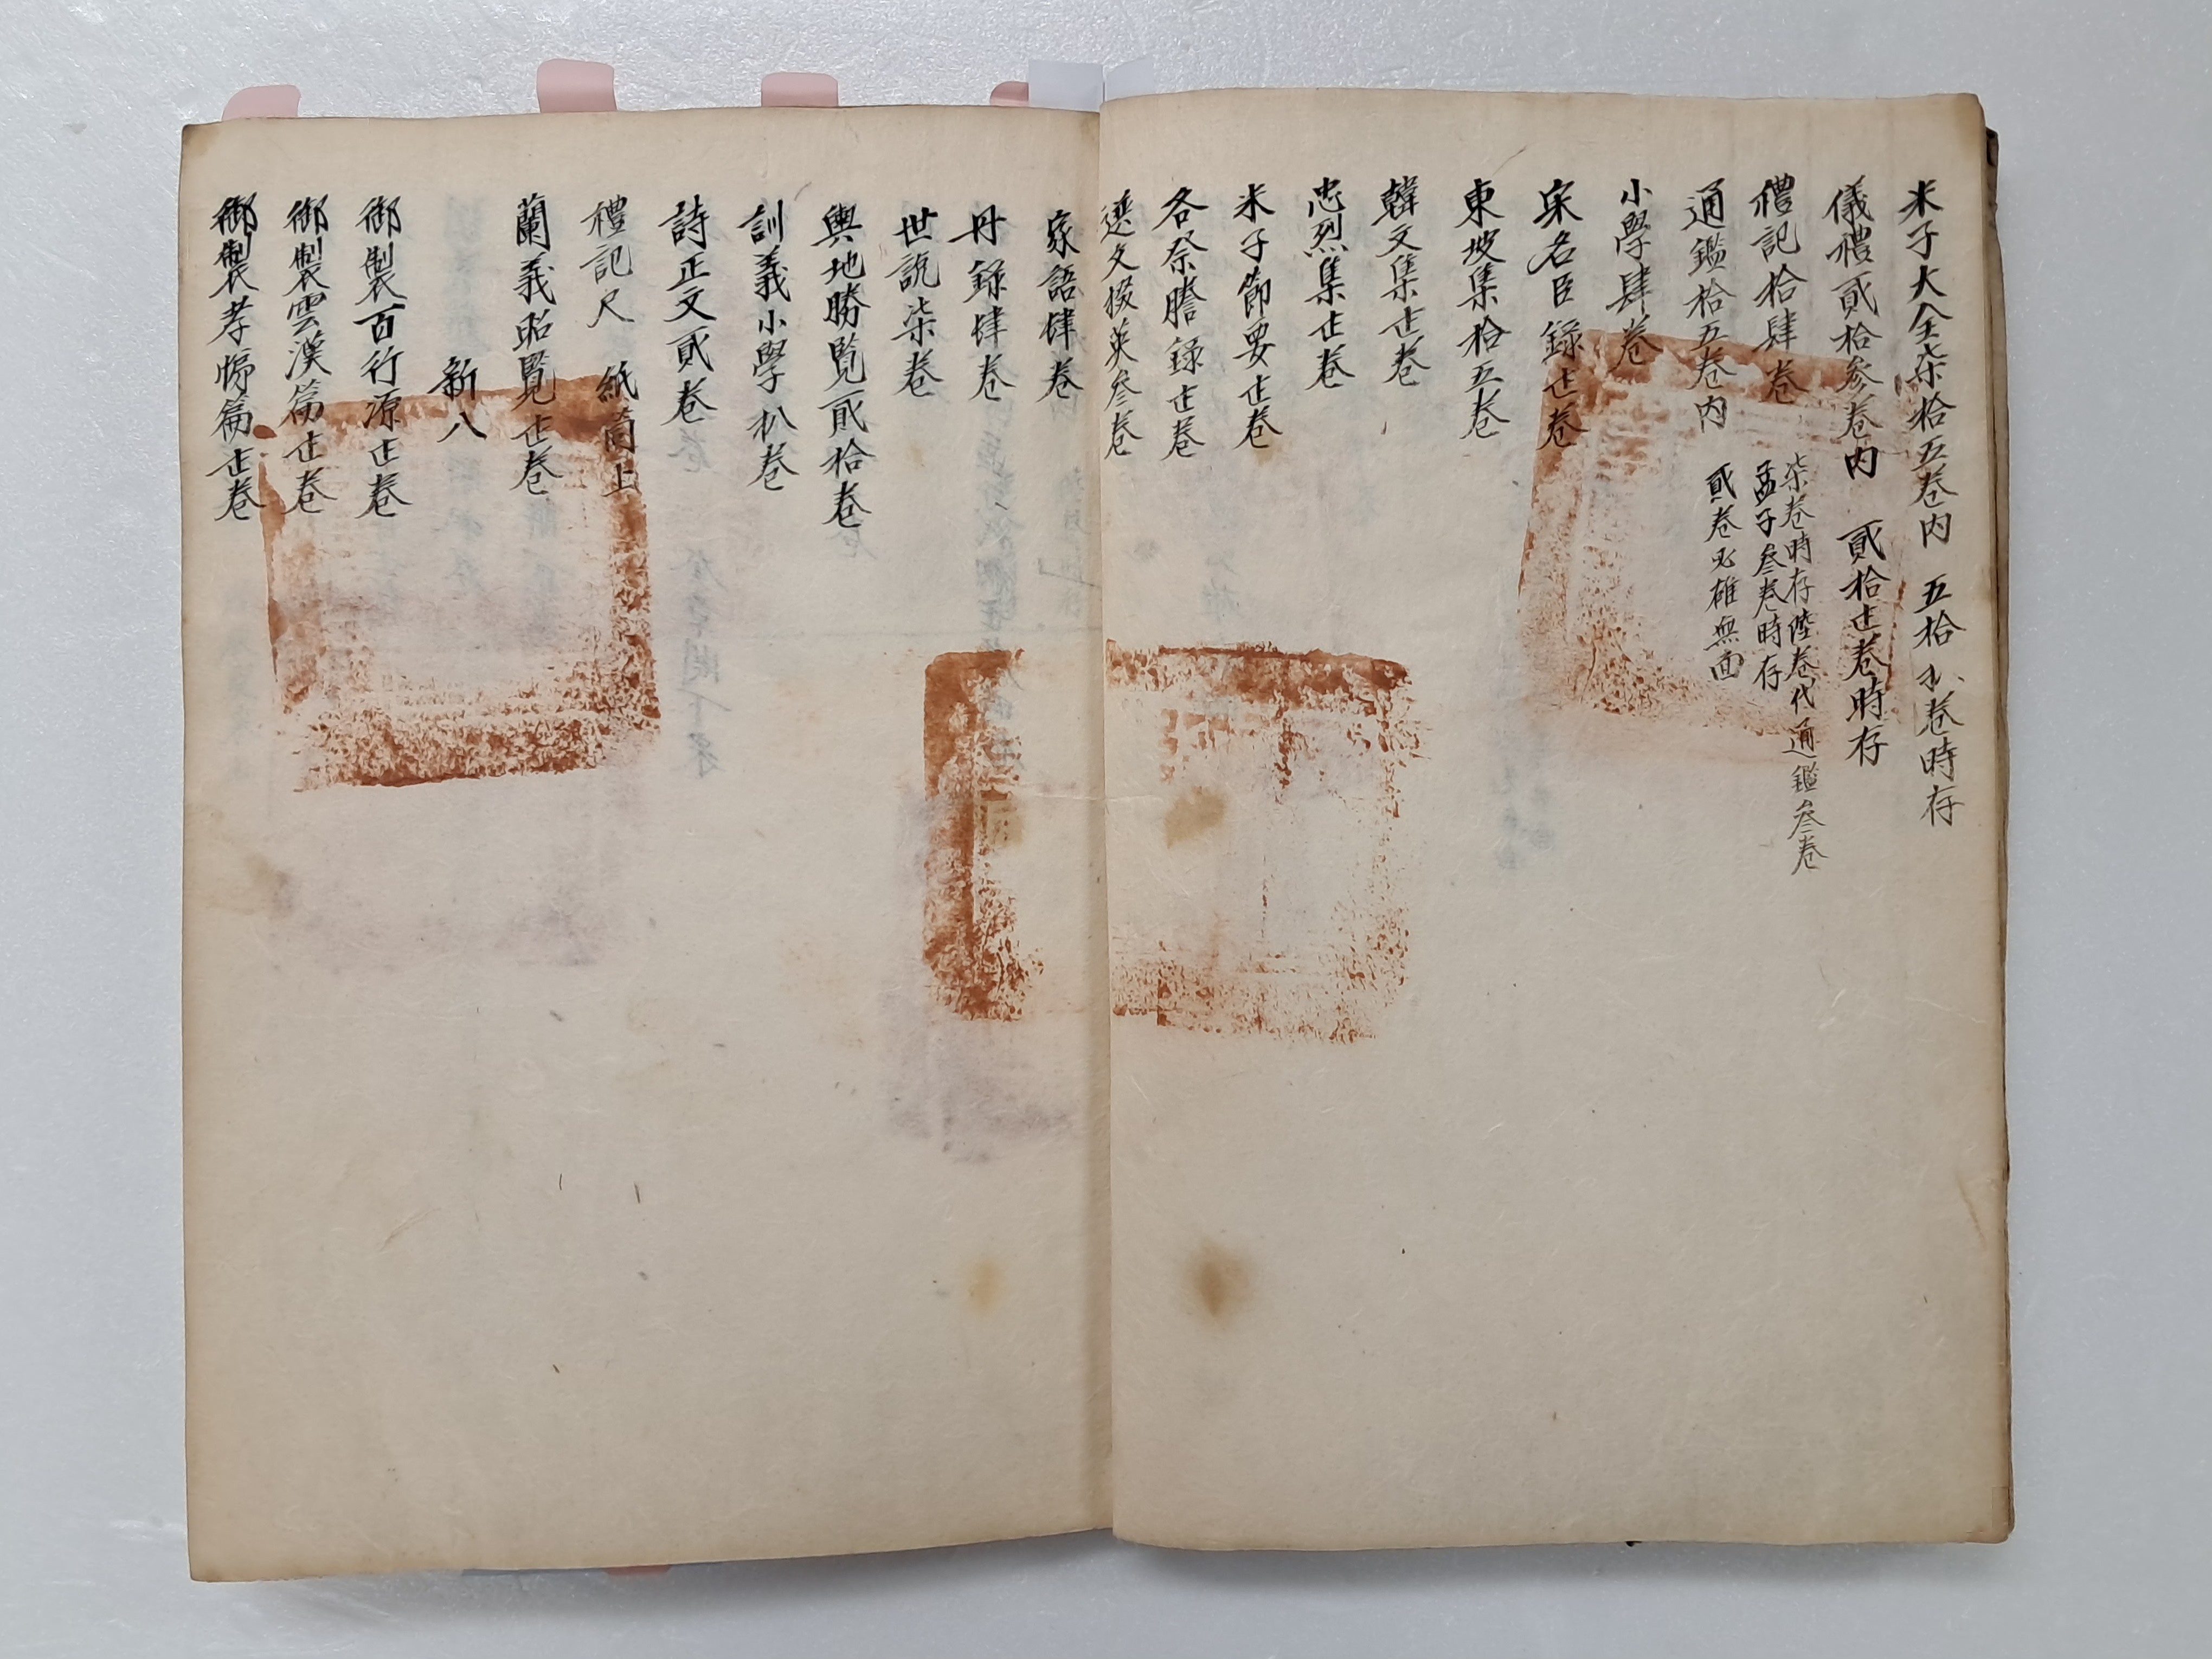 朱子大全柒拾五卷內 五拾扒卷時存
儀禮貳拾參卷內 貳拾㱏卷時存
禮記拾肆卷
柒卷時存陸卷代通鑑叅卷
孟子叅卷時存
通鑑拾五卷內
貳卷必雄無面
小學肆卷
宋名臣錄㱏卷
東坡集拾五卷
韓文集㱏卷
忠烈集㱏卷
朱子節要㱏卷
各祭謄錄㱏卷
選文掇英叅卷
家語肆卷
丹錄肆卷
世說柒卷
輿地勝覧貳拾卷
訓義小學扒卷
詩正文貳卷
禮記尺 紙筒上
蘭義昭覧㱏卷
新八
御製百行源㱏卷
御製雲漢篇㱏卷
御製孝悌篇㱏卷